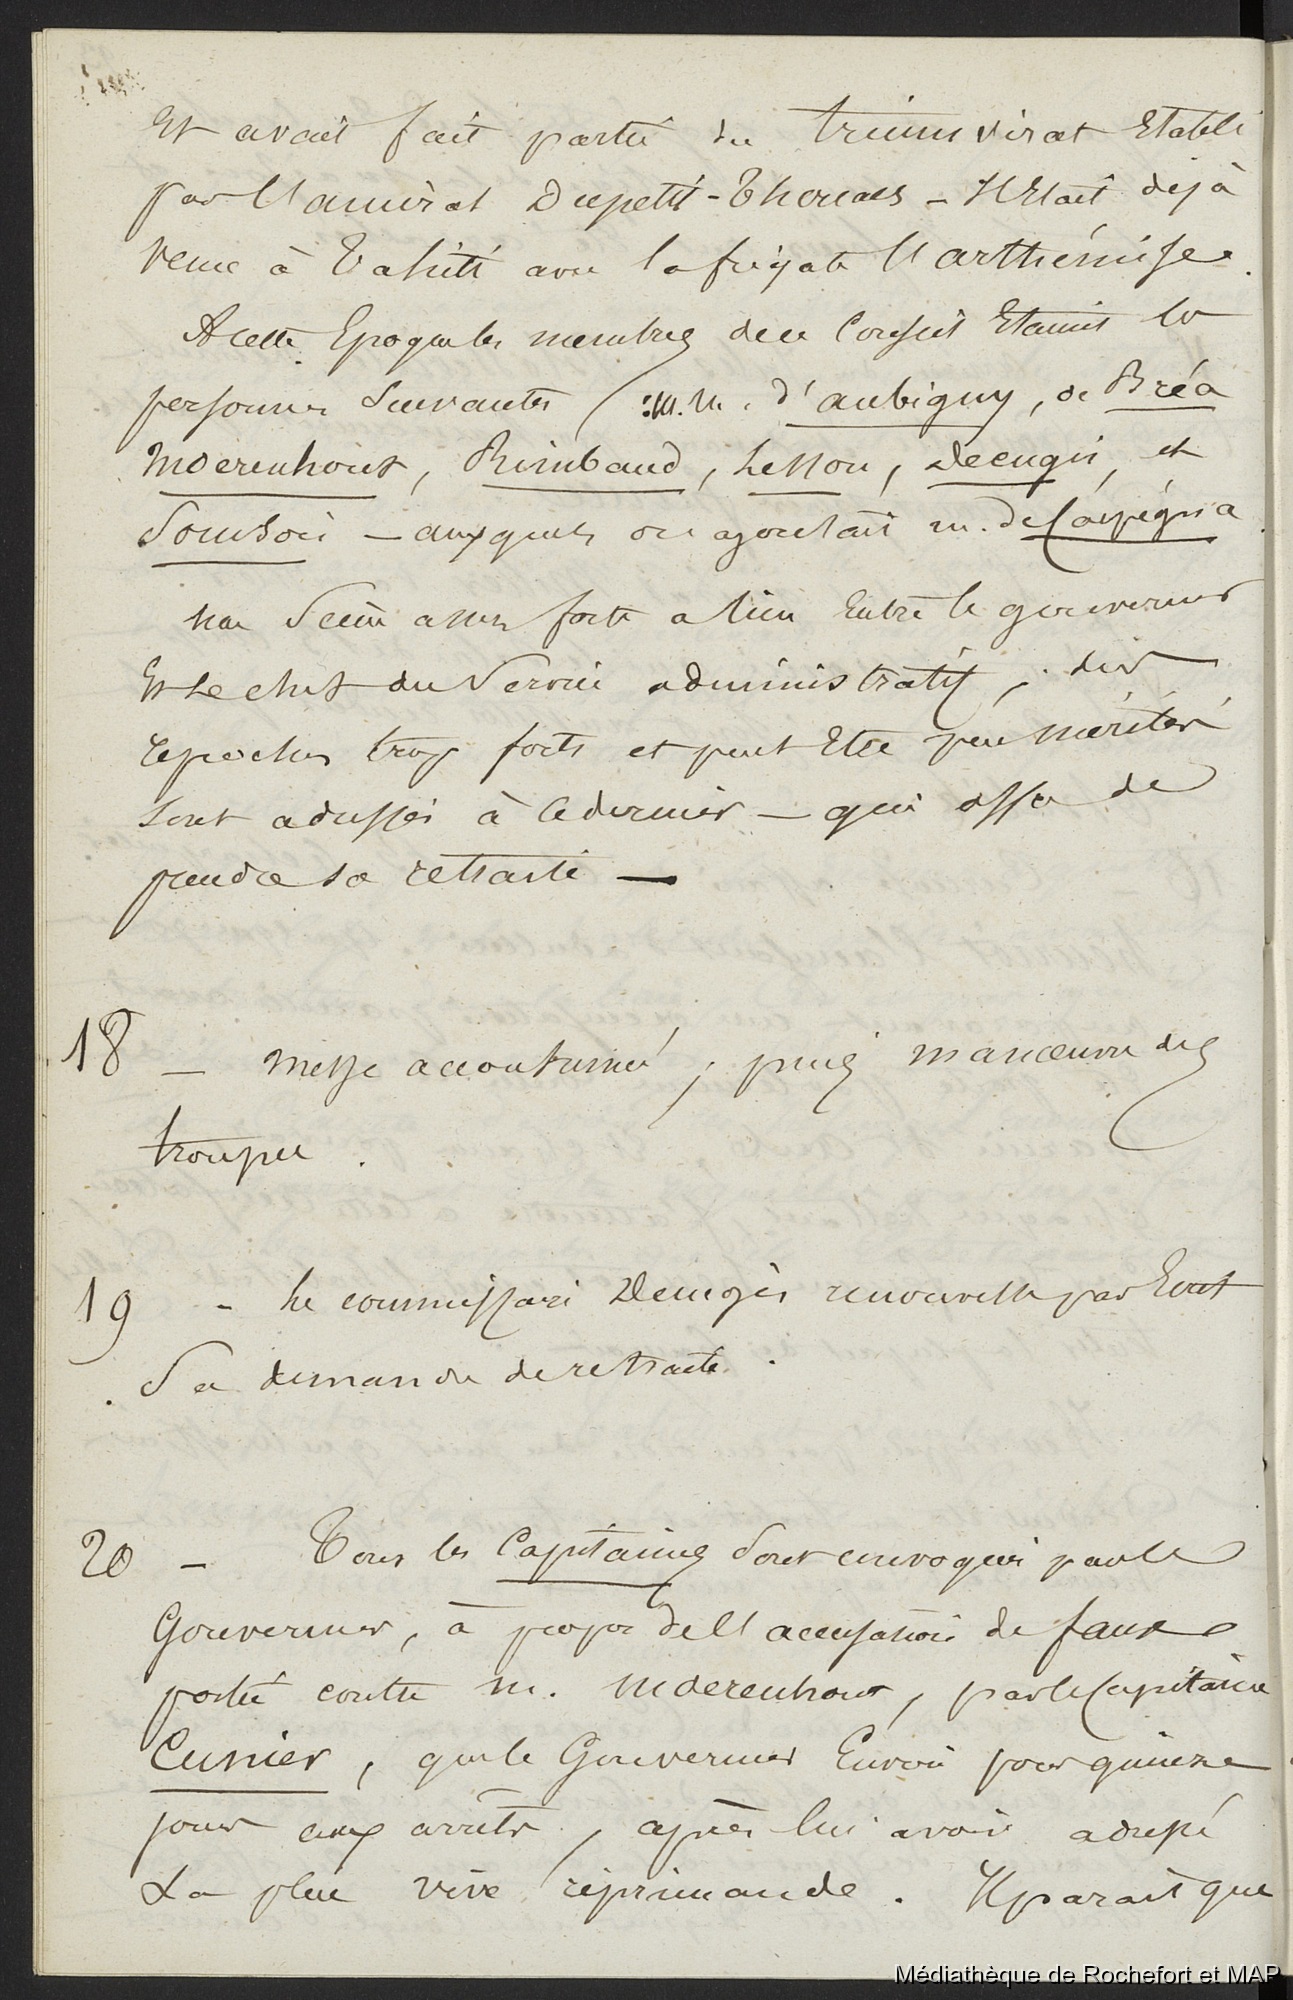 Et avait fait partie du triumvirat Etabli
par l'amiral Dupetit-Thouars - Il Etait déjà
venu à Tahiti avec la frégate l'arthémise.
A cette Epoque les membres de ce Conseil Etaient les
personnes Suivantes (: M.M. d'aubigny, de Bréa
Moerenhout, Rimbaud, Lesson, Decugis, et
- auxquels on ajoutait m. de Carpégna.
une Scène assez forte a lieu Entre le gouverneur
Et Le chef du Service administratif, des
reproches trop forts et peut Etre peu mérités
sont adressés à ce dernier - qui offre de
prendre sa retraite -
18 - messe accoutumée, puis manœuvre des
troupes.
19 - Le commissaire Decugis renouvelle par Ecrit
Sa demande de retraite.
20 - Tous les Capitaines Sont convoqués par le
Gouverneur, à propos de l'accusation de faux
portée contre m. Moerenhout, par le Capitaine
Cunier, que le Gouverneur Envoie pour quinze
jours aux arrêts, après lui avoir adressé
La plus vive réprimande. Il parait que
Médiathèque de Rochefort et MAP